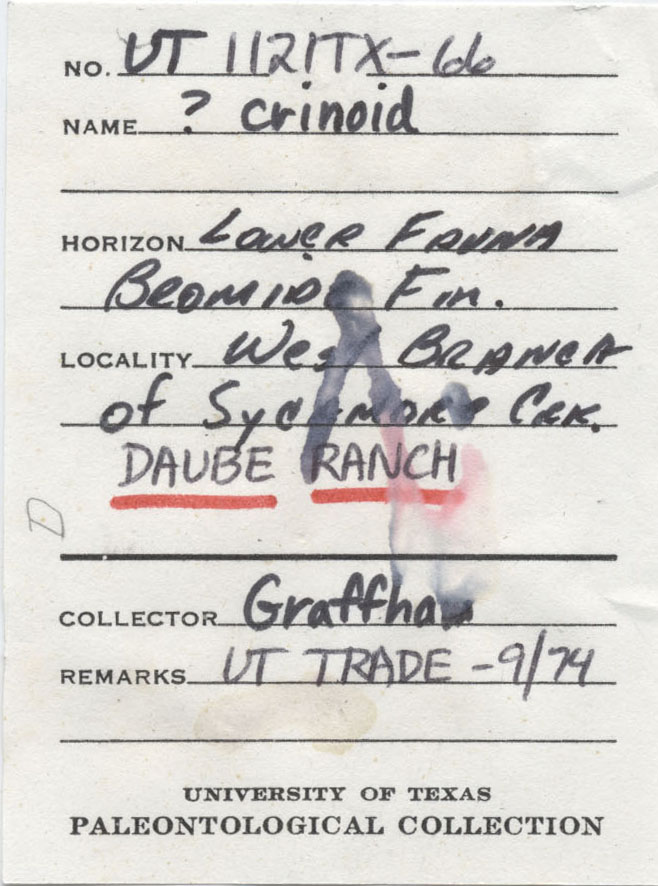 NO. UT 1121TX-66
NAME ? crinoid
HORIZON Lower Fauna
Bromide Fm.
LOCALITY West Branch
of Sycamore Crk.
DAUBE RANCH
D
COLLECTOR Graffham
REMARKS UT TRADE - 9/74
UNIVERSITY OF TEXAS
PALEONTOLOGICAL COLLECTION